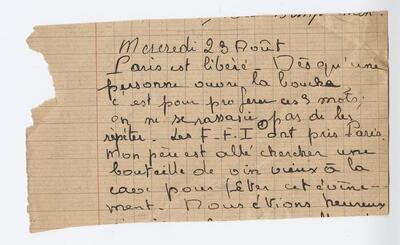 Mercredi 23 Août
Paris est libéré. Dès qu'une
personne ouvre la bouche
c'est pour proférer ces 3 mots,
on ne se rassasie pas de les
répéter. Les F.F.I ① ont pris Paris.
Mon père est allé chercher une
bouteille de vin vieux à la
cave pour fêter cet évène-
ment. Nous étions heureux